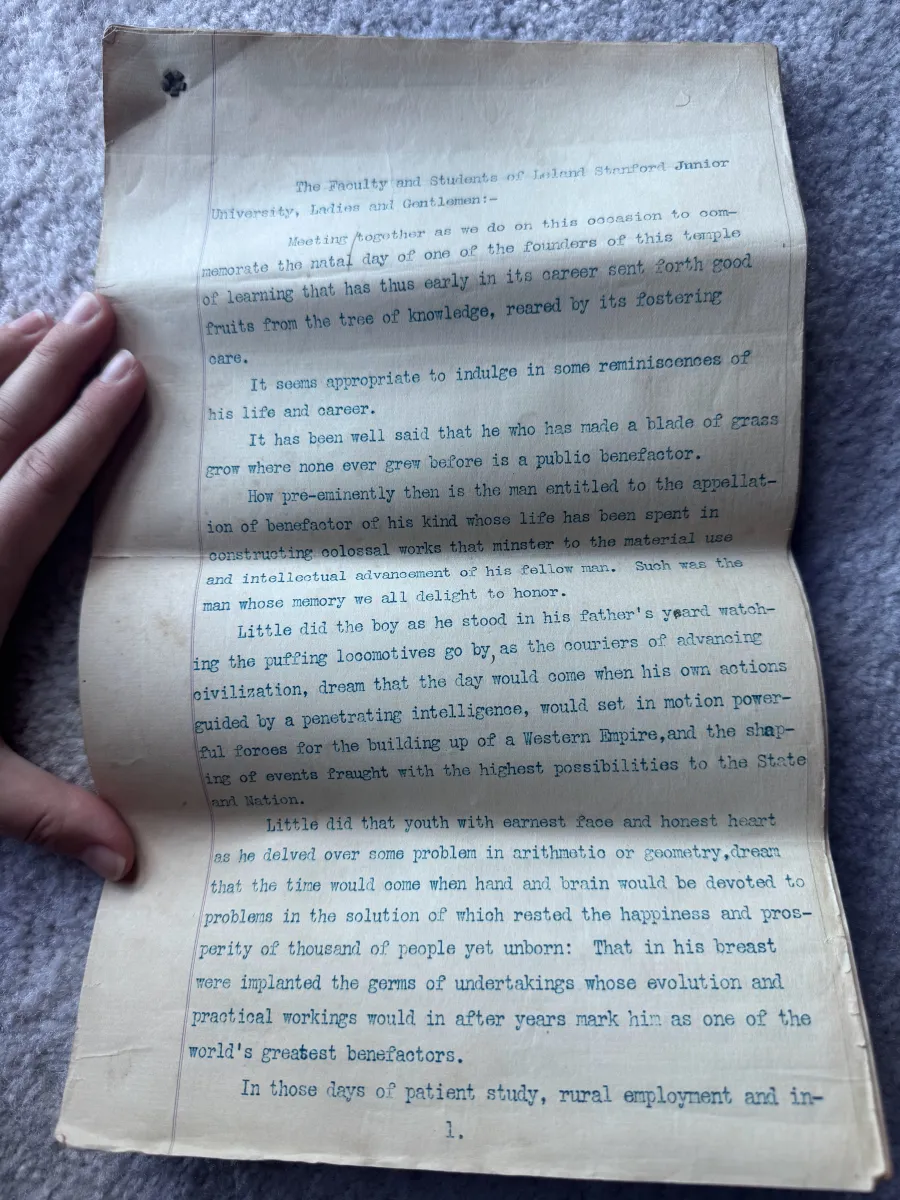 The Faculty and Students of Leland Stanford Junior
University, Ladies and Gentlemen:-
Meeting/together as we do on this occasion to com-
memorate the natal day of one of the founders of this temple
of learning that has thus early in its career sent forth good
fruits from the tree of knowledge, reared by its fostering
care.
It seems appropriate to indulge in some reminiscences of
his life and career.
It has been well said that he who has made a blade of grass
grow where none ever grew before is a public benefactor.
How pre-eminently then is the man entitled to the appellat-
ion of benefactor of his kind whose life has been spent in
constructing colossal works that minster to the material use
and intellectual advancement of his fellow man. Such was the
man whose memory we all delight to honor.
Little did the boy as he stood in his father's yeard watch-
ing the puffing locomotives go by, as the couriers of advancing
civilization, dream that the day would come when his own actions
guided by a penetrating intelligence, would set in motion power-
ful forces for the building up of a Western Empire,and the shap-
ing of events fraught with the highest possibilities to the State
and Nation.
Little did that youth with earnest face and honest heart
as he delved over some problem in arithmetic or geometry,dream
that the time would come when hand and brain would be devoted to
problems in the solution of which rested the happiness and pros-
perity of thousand of people yet unborn: That in his breast
were implanted the germs of undertakings whose evolution and
practical workings would in after years mark him as one of the
world's greatest benefactors.
In those days of patient study, rural employment and in-
1.